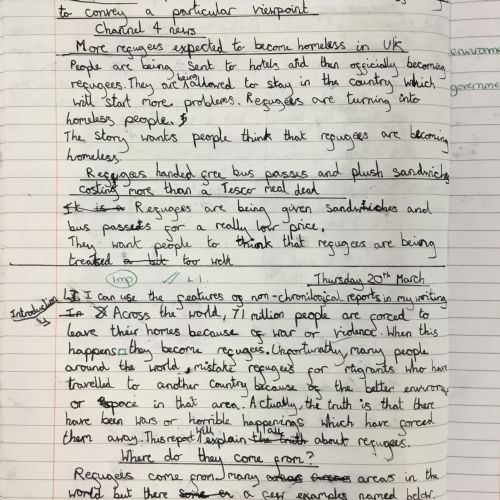 to convey a particular viewpoint
Channel 4 news
More refugees expected to become homeless in UK
People are being sent to hotels and then officially becoming
refugees. They are being allowed to stay in the country which
will start more problems. Refugees are turning into
homeless people.
The story wants people think that refugees are becoming
homeless.
Refugees handed free bus passes and plush sandwiches
costing more than a Tescor meal deal
It is a Refugees are being given sandwiches and
bus passes for a really low price.
They want people to think that refugees are being
treated a bit too well
Imp // L.I.
Thursday 20th March
L.I I can use the features of non-chronilogical reports in my writing
Introduction
In Across the world, 71 million people are forced to
leave their homes because of war or violence. When this
happens they become refugees. Unfortunatly, many people
around the world, mistake refugees for migrants who have
travelled to another country because of the better environ
or space in that area. Actually, the truth is that there
have been wars or horrible happenings which have forced
them away. This report will explain the truth all about refugees.
Where do they come from?
Refugees come from many areas areas areas in the
world but there some or a few examples named below.